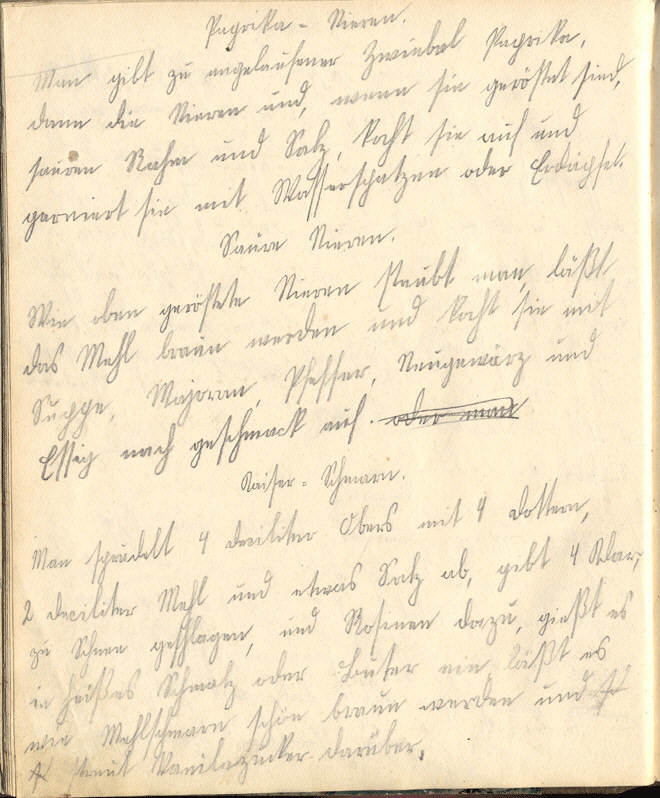 Paprika-Nieren.
Man gibt zu angelaufener Zwiebel Paprika,
dann die Nieren und, wenn sie geröstet sind,
sauren Rahm und Salz, kocht sie auf und
garniert sie mit Wasserspatzen oder Erdäpfel.
Saure Nieren.
Wie oben geröstete Nieren staubt man, läßt
das Mehl braun werden und kocht sie mit
Suppe, Majoran, Pfeffer, Neugewürz und
Essig nach geschmack auf. oder man
Kaiser-Schmarn.
Man sprudelt 4 deciliter Obers mit 4 Dottern,
2 deciliter Mehl und etwas Salz ab, gibt 4 Klar,
zu Schnee geschlagen, und Rosinen dazu, gießt es
in heißes Schmalz oder Buter ein läßt es
wie Mehlschmarn schön braun werden und
streut Vanilezucker darüber.